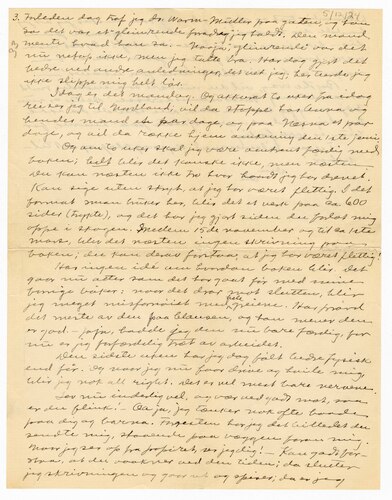 3. Forleden dag traf jeg Dr. Worm-Müller paa gaten, og han
sa det var et glimrende foredrag jeg holdt. Den mand
mente hvad han sa. - Naaja, glimrende var det
nu neppe ikke, men jeg talte bra. Har dog gjort det
bedre ved andre anledninger, det vet jeg, her turde jeg
ikke slippe mig helt løs.
Idag er det mandag. Og akkurat to uker fra idag
reiser jeg til Nordland, vil da stoppe hos
hendes mand en par dage, og paa Værnes et par
dage, og vil da række hjem omkring den 1ste juni
Og om to uker skal jeg være omtrent færdig med
boken; helt blir det kanske ikke, men næsten
Du kan næsten ikke tro hvor haardt jeg har drevet.
Kan sige uten skryt, at jeg har været flittig. I det
format man bruker her, blir det et verk paa ca. 600
sider (trykte), og det har jeg gjort siden du forlot mig
oppe i skogen. Mellem 15de november og til ca 1ste
mars blev det næsten ingen skrivning paa
boken; du kan derav forstaa, at jeg har været flittig!
Har ingen ide om hvordan boken blir. Det
gaar nu atter som det har gaat før med mine
øvrige bøker: naar det drar mot slutten, blir
jeg meget misfornøiet med hele greiene. Har forord
det meste av den paa Clausen, og han mener den
er god. - jaja, hadde jeg den nu bare færdig, for
nu er jeg forfærdelig træt av arbeidet.
Den sidste uken har jeg dog følt bedre fysisk
end før. Og naar jeg nu faar drive og hvile mig
blir jeg nok all right. Det er vel mest bare nervene.
Lev nu inderlig vel, og vær ved godt mot, som
er du flink. - Oa ja, jeg tænker nok ofte baade
paa dig og barna. Forresten har jeg det billedet du
sendte mig, staaende paa væggen foran mig.
Naar jeg ser op fra papiret, ser jeg dig! - Kan godt for-
staa, at du vaakner ved den tiden; da slutter
jeg skrivningen og gaar ut og spiser; da er jeg